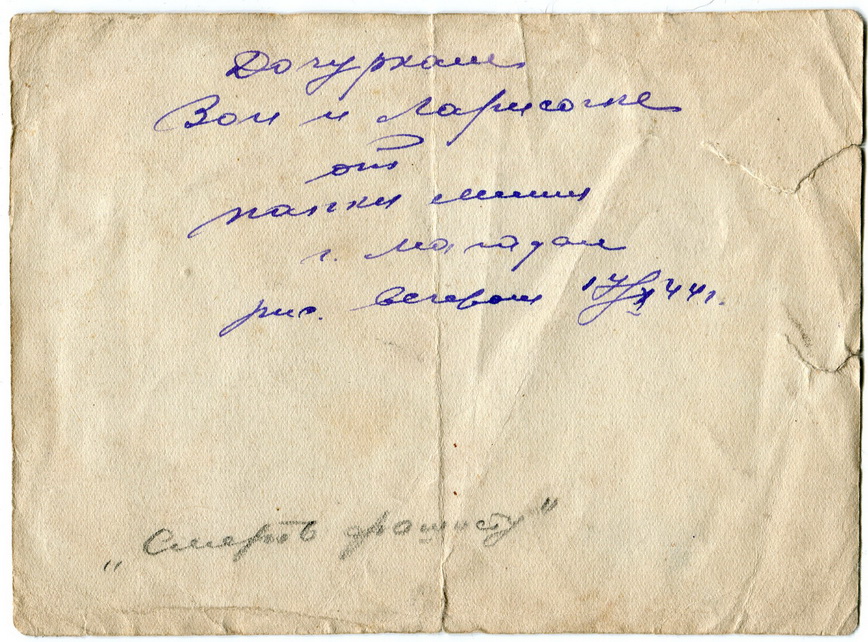 Дочуркам
Вои и Ларисочке
от
папки Миши
г. Магадан
рис. вечером 17/X 44 г.
„Смерть фашисту"